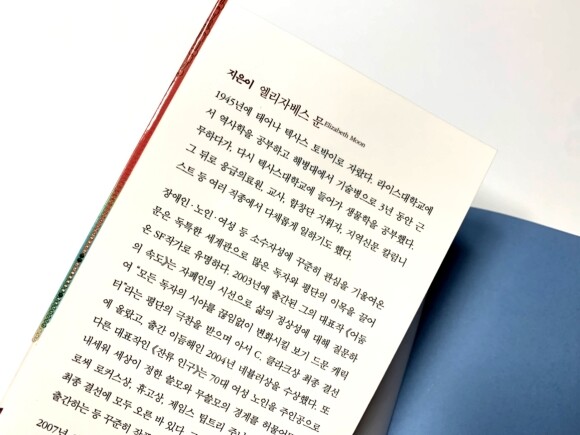 지은이 엘리자베스 문 Elizabeth Moon
1945년에 태어나 텍사스 토박이로 자랐다. 라이스대학교에
서 역사학을 공부하고 해병대에서 기술병으로 3년 동안 근
무하다가, 다시 텍사스대학교에 들어가 생물학을 공부했다.
그 뒤로 응급의료원, 교사, 합창단 지휘자, 지역신문 칼럼니
스트 등 여러 직종에서 다채롭게 일하기도 했다.
장애인·노인·여성 등 소수자성에 꾸준히 관심을 기울여온
문은 독특한 세계관으로 많은 독자와 평단의 이목을 끌어
온 SF작가로 유명하다. 2003년에 출간된 그의 대표작 《어둠
의 속도》는 자폐인의 시선으로 삶의 정상성에 대해 질문하
여 "모든 독자의 시야를 끊임없이 변화시킬 보기 드문 캐릭
터"라는 평단의 극찬을 받으며 아서 C. 클라크상 최종 결선
에 올랐고, 출간 이듬해인 2004년 네뷸러상을 수상했다. 또
다른 대표작인 《잔류 인구》는 70대 여성 노인을 주인공으로
내세워 세상이 정한 쓸모와 무쓸모의 경계를 허물어
로써 로커스상, 휴고상, 제임스 팁트리 주니
최종 결선에 모두 오른 바 있다.
출간하는 등 꾸준히
2007년